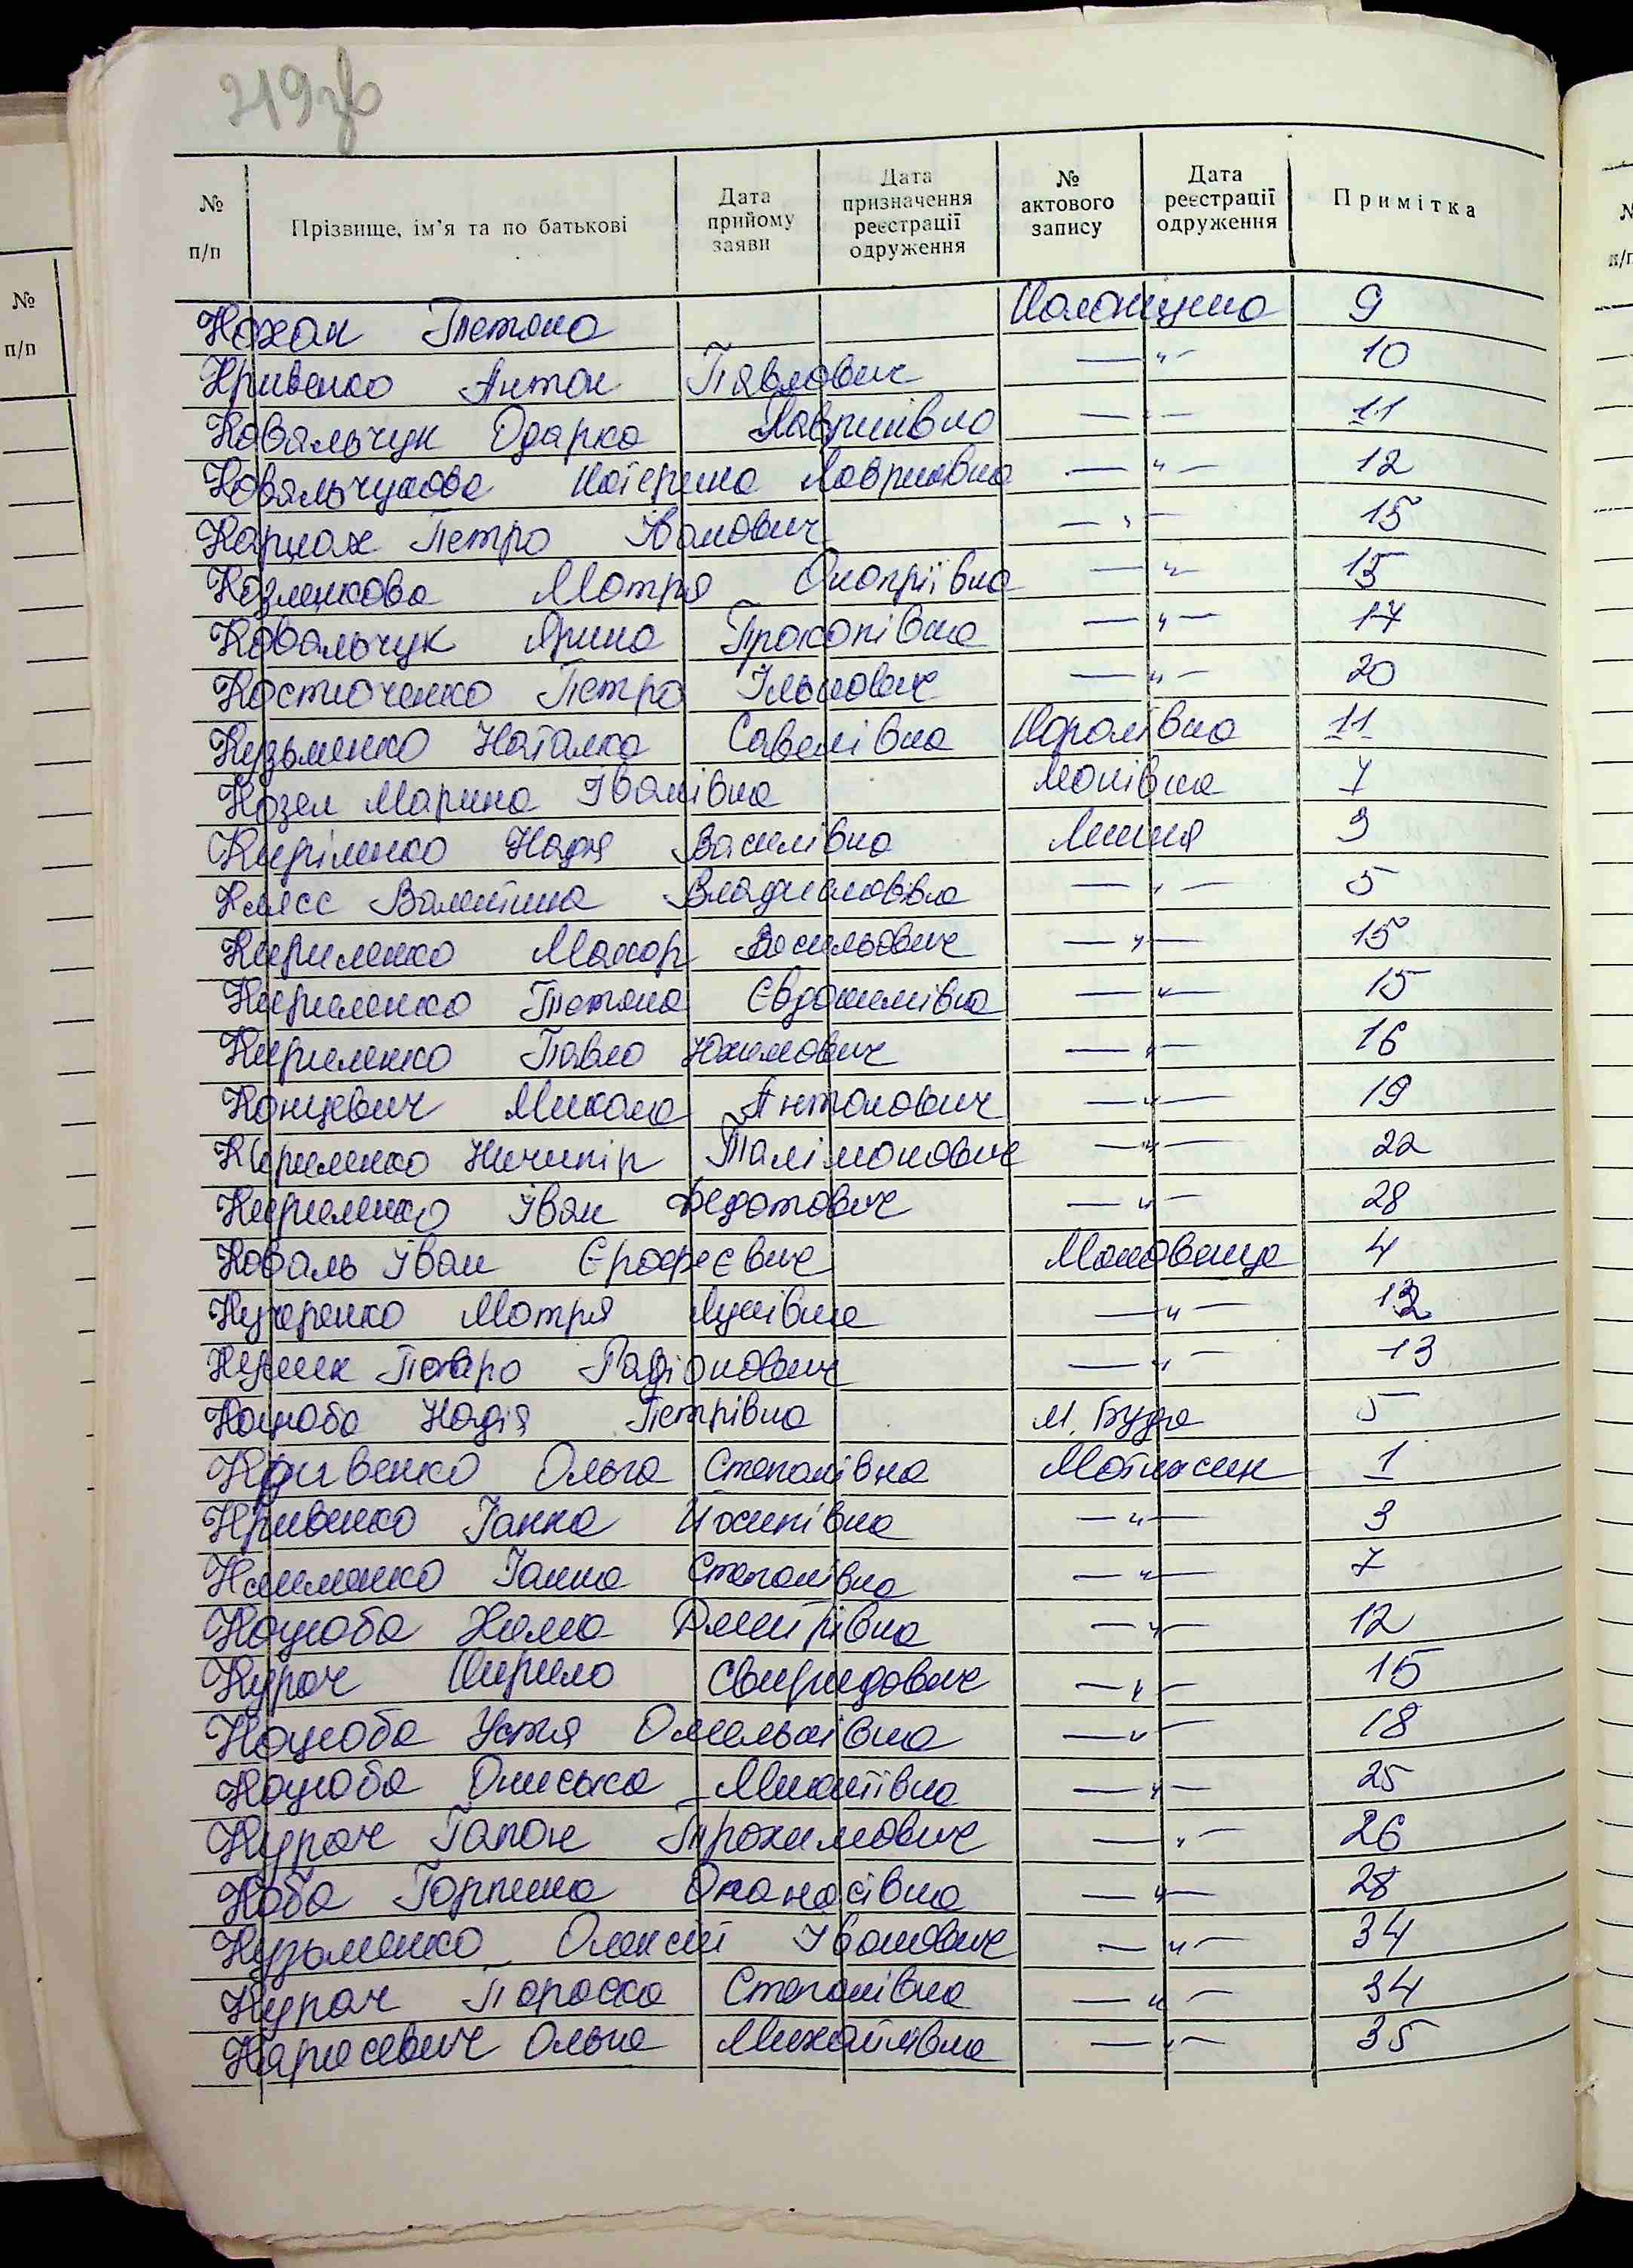 219зв
№ п/п Прізвище, ім'я та по батькові Дата прийому заяви Дата призначення реєстрації одруження № актового запису Дата реєстрації одруження Примітка
Кохан Тетяна Колонщина 9
Кривенко Антон Павлович —"— 10
Ковальчук Одарка Лавринівна —"— 11
Ковальчукова Катерина Лавринівна —"— 12
Карпюк Петро Іванович —"— 15
Козленкова Мотря Оноприївна —"— 15
Ковальчук Ярина Прокопівна —"— 17
Костюченко Петро Ількович —"— 20
Кузьменко Наталка Савелівна Королівна 11
Козел Марина Іванівна Копівна 7
Кириленко Надя Василівна Личня 9
Класс Валентина Владиславівна —"— 5
Кириленко Макар Васильович —"— 15
Кириленко Тетяна Євдокимівна —"— 15
Кириленко Павло Юхимович —"— 16
Концевич Микола Антонович —"— 19
Кириленко Ничипір Талімонович —"— 22
Кириленко Іван Федотович —"— 28
Коваль Іван Єрофеєвич Маковище 4
Кучеренко Мотря Луківна —"— 12
Петро Радіонович —"— 13
Коцюба Надія Петрівна М. Буда 5
Кривенко Ольга Степанівна Мотижин 1
Кривенко Ганна Йосипівна —"— 3
Клименко Ганна Степанівна —"— 7
Коцюба Дмитрівна —"— 12
Курач Кирило Свиридович —"— 15
Коцюба Устя Омельківна —"— 18
Коцюба Ониська Микитівна —"— 25
Курач Гапон Трохимович —"— 26
Коба Горпина Опанасівна —"— 28
Кузьменко Олексій Іванович —"— 34
Курач Параска Степанівна —"— 34
Ольга Михайлівна —"— 35
№ п/п